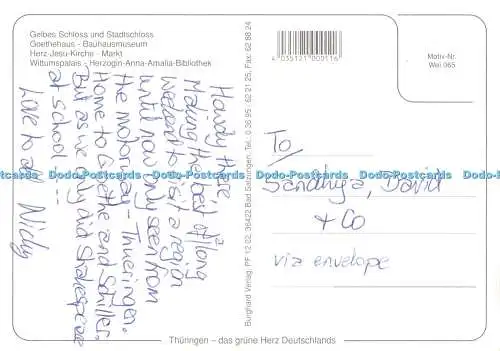 Gelbes Schloss und Stadtschloss
Goethehaus - Bauhausmuseum
Herz-Jesu-Kirche - Markt
Wittumspalais - Herzogin-Anna-Amalia-Bibliothek
Howdy there
Making the best of a long
weekend to visit a region
until now only seen from
the motorway - Thueringen.
Home to Goethe and Schiller.
But as we only did Shakespeare
at school....
Love to all Nicky
Burghard Verlag, PF 12 02, 36422 Bad Salzungen, Tel.: 0 36 95 / 62 21 25, Fax: 62 88 24
4 035121 000116
Motiv-Nr.
Wei 065
To
Sandhya, David
+ Co
via envelope
Thüringen – das grüne Herz Deutschlands
Dodo-Postcards Dodo-Postcards Dodo-Postcards Dodo-Postcards
Dodo-Postcards Dodo-Postcards Dodo-Postcards Dodo-Postcards